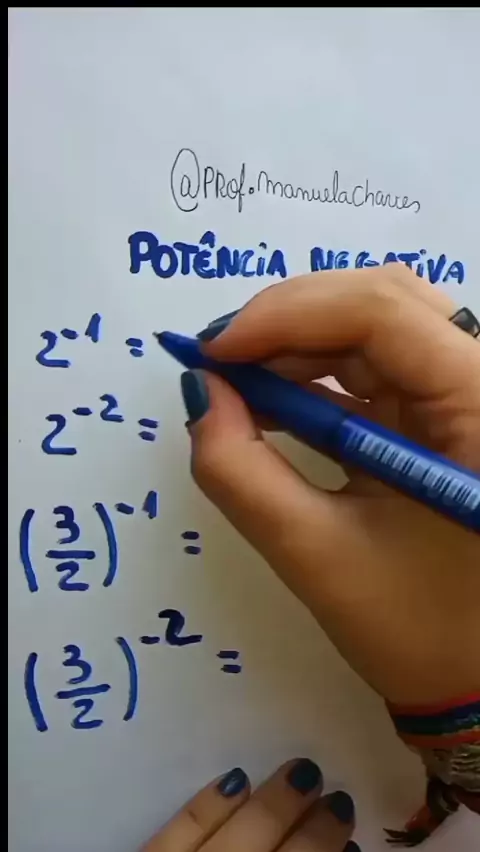 @Prof.manuelaChaves
POTÊNCIA NEGATIVA
2⁻¹ =
2⁻² =
(3/2)⁻¹ =
(3/2)⁻² =